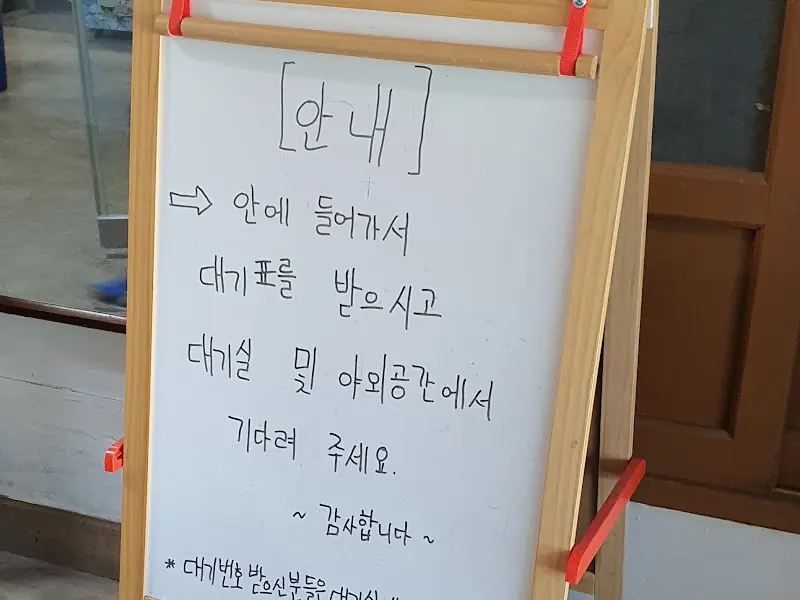 [안내]
⇨ 안에 들어가서
대기표를 받으시고
대기실 및 야외공간에서
기다려 주세요.
~ 감사합니다 ~
* 대기번호 받으신분들은